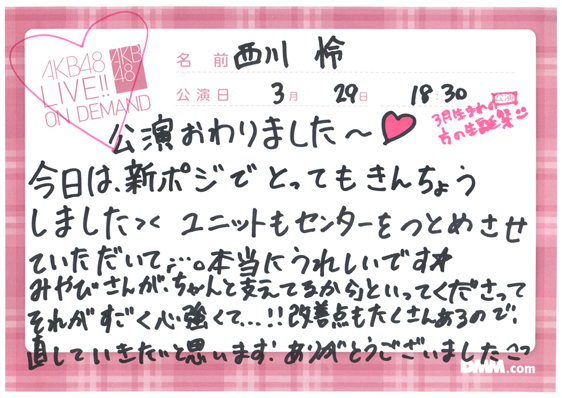 AKB48
LIVE!!
ON DEMAND
AKB
48
名前 西川 怜
公演日 3月 29日 18:30
公演
3月生まれの
方の生誕祭
公演おわりました〜
今日は、新ポジでとってもきんちょう
しました>< ユニットもセンターをつとめさせ
ていただいて…。本当にうれしいです
みやびさんが、「ちゃんと支えてるから」といってくださって
それがすごく心強くて…!!改善点もたくさんあるので、
直していきたいと思います! ありがとうございました
DMM.com